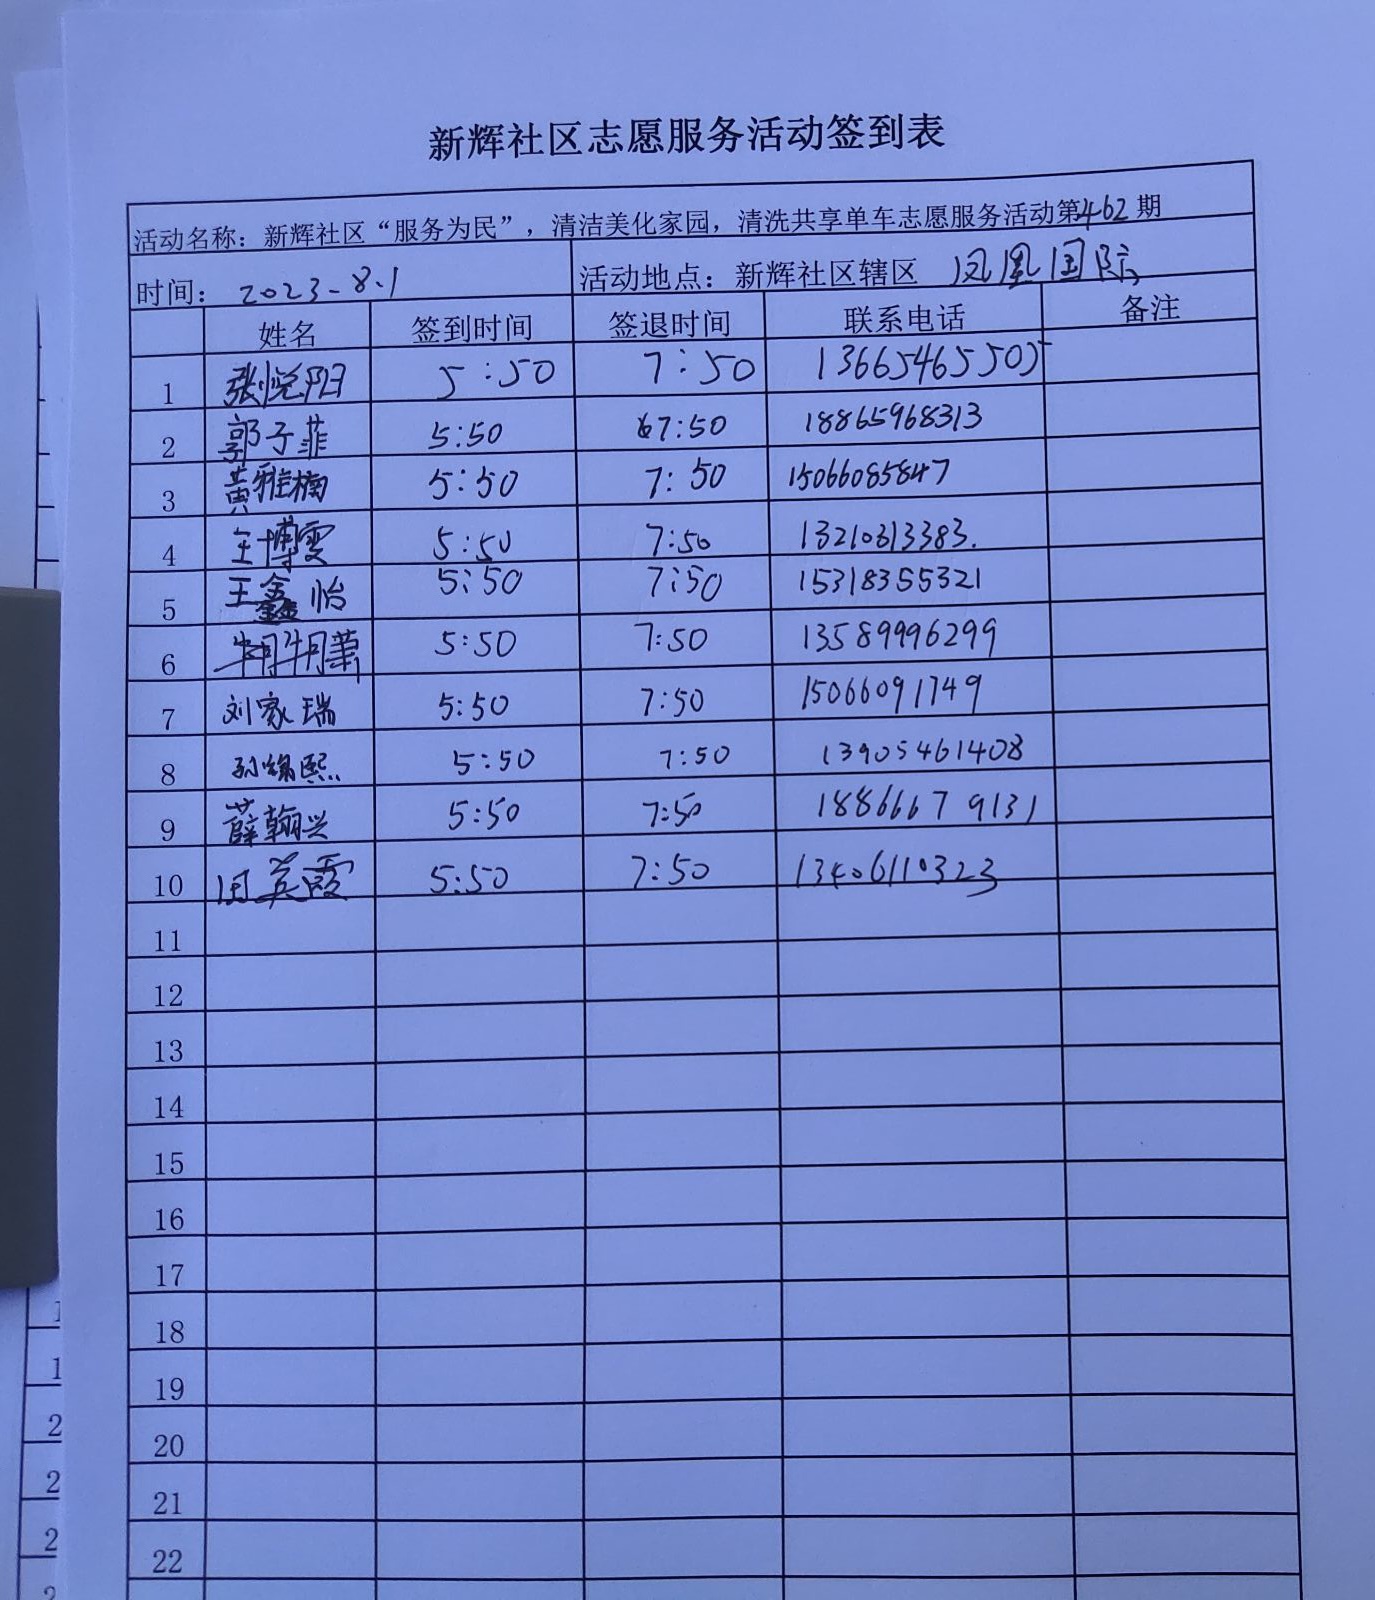 新辉社区志愿服务活动签到表
活动名称：新辉社区“服务为民”，清洁美化家园，清洗共享单车志愿服务活动第462期
时间：2023.8.1 活动地点：新辉社区辖区 凤凰国际
姓名 签到时间 签退时间 联系电话 备注
1 张悦阳 5:50 7:50 13665465505
2 郭子菲 5:50 7:50 18865968313
3 黄雅楠 5:50 7:50 15066085847
4 王博雯 5:50 7:50 13210613383.
5 王鑫怡 5:50 7:50 15318355321
6 5:50 7:50 13589996299
7 刘家瑞 5:50 7:50 15066091749
8 孙 熙 5:50 7:50 13905461408
9 薛翰兴 5:50 7:50 18866679131
10 田英霞 5:50 7:50 13406110323
11
12
13
14
15
16
17
18
19
20
21
22